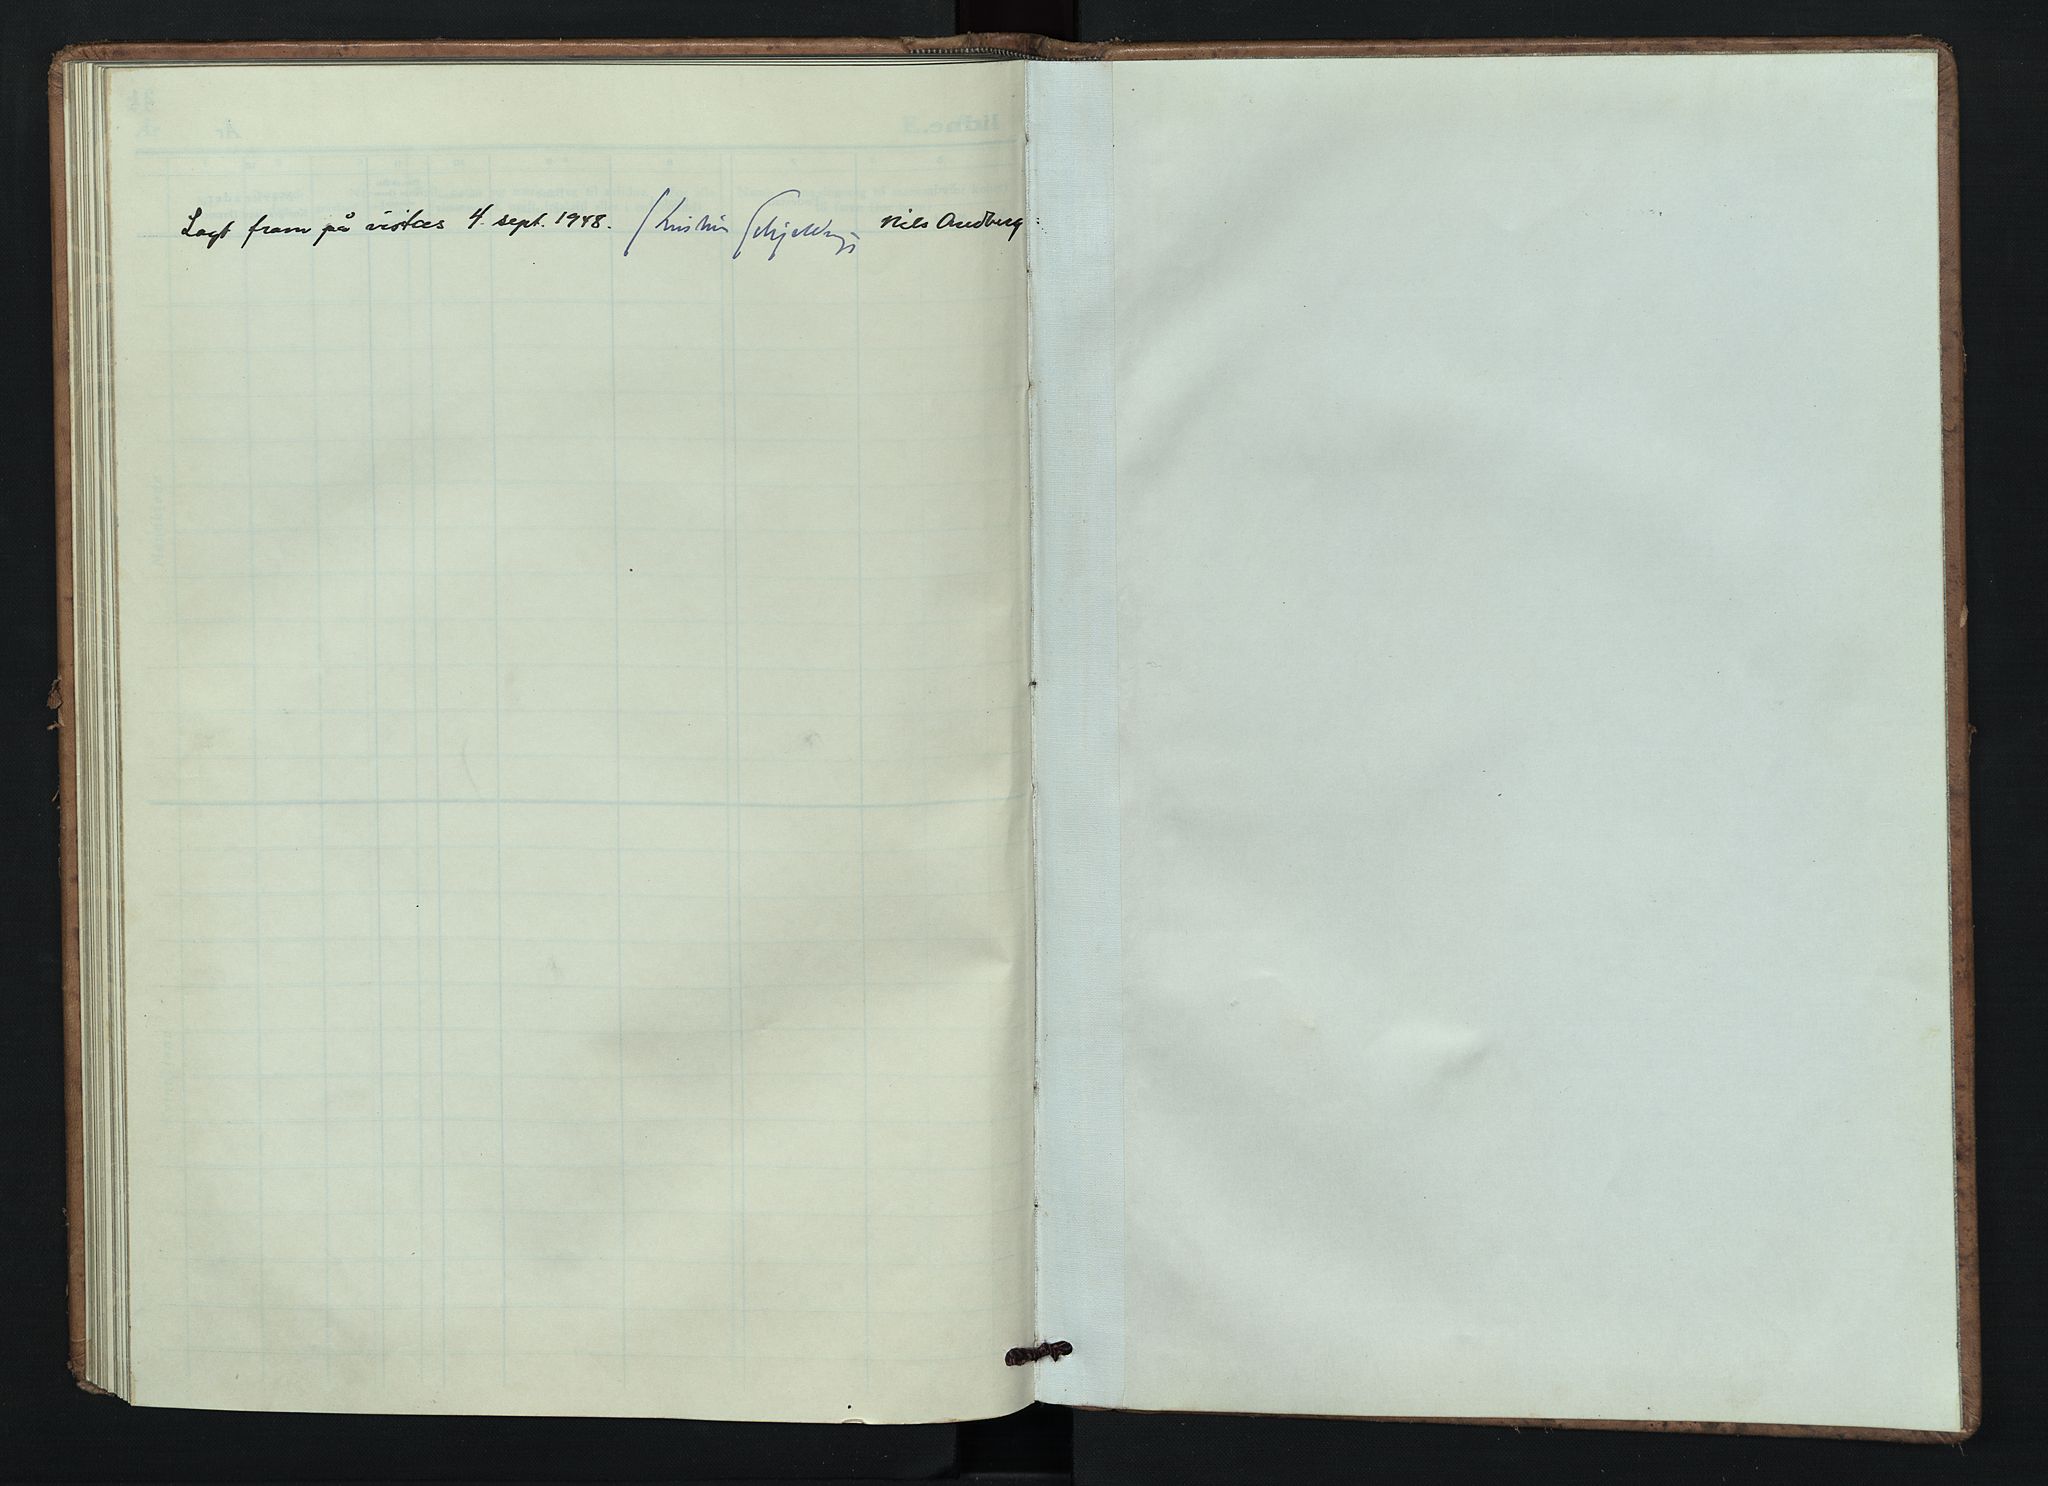 Lagt fram på visitas 4. sept. 1948. Kristian Schjelderup Nils Audberg